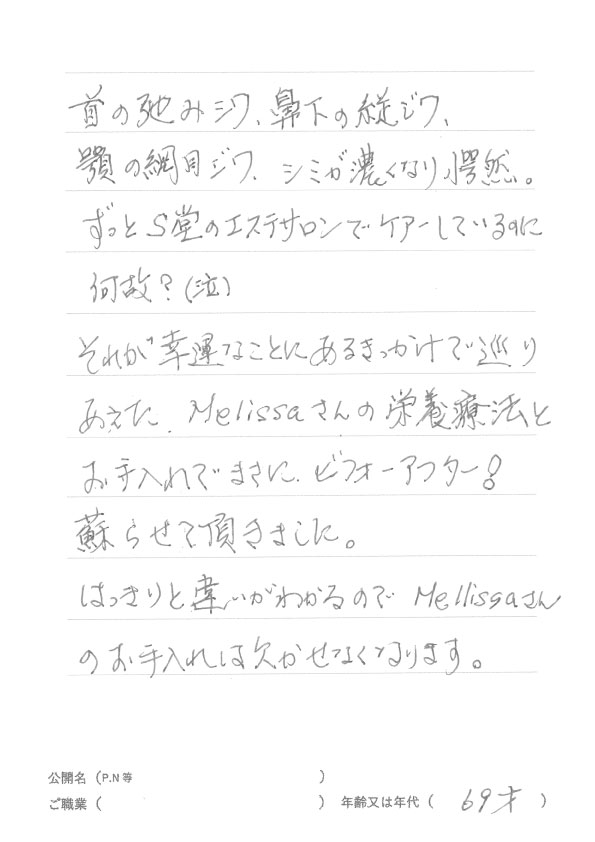 首の弛みシワ、鼻下の縦ジワ、
顎の網目ジワ、シミが濃くなり愕然。
ずっとS堂のエステサロンでケアーしているのに
何故?(泣)
それが幸運なことにあるきっかけで巡り
あえた、Melissaさんの栄養療法と
お手入れでまさに、ビフォーアフター!
蘇らせて頂きました。
はっきりと違いがわかるので Mellissaさん
のお手入れは欠かせなくなります。
公開名(P.N等 )
ご職業( ) 年齢又は年代( 69才 )